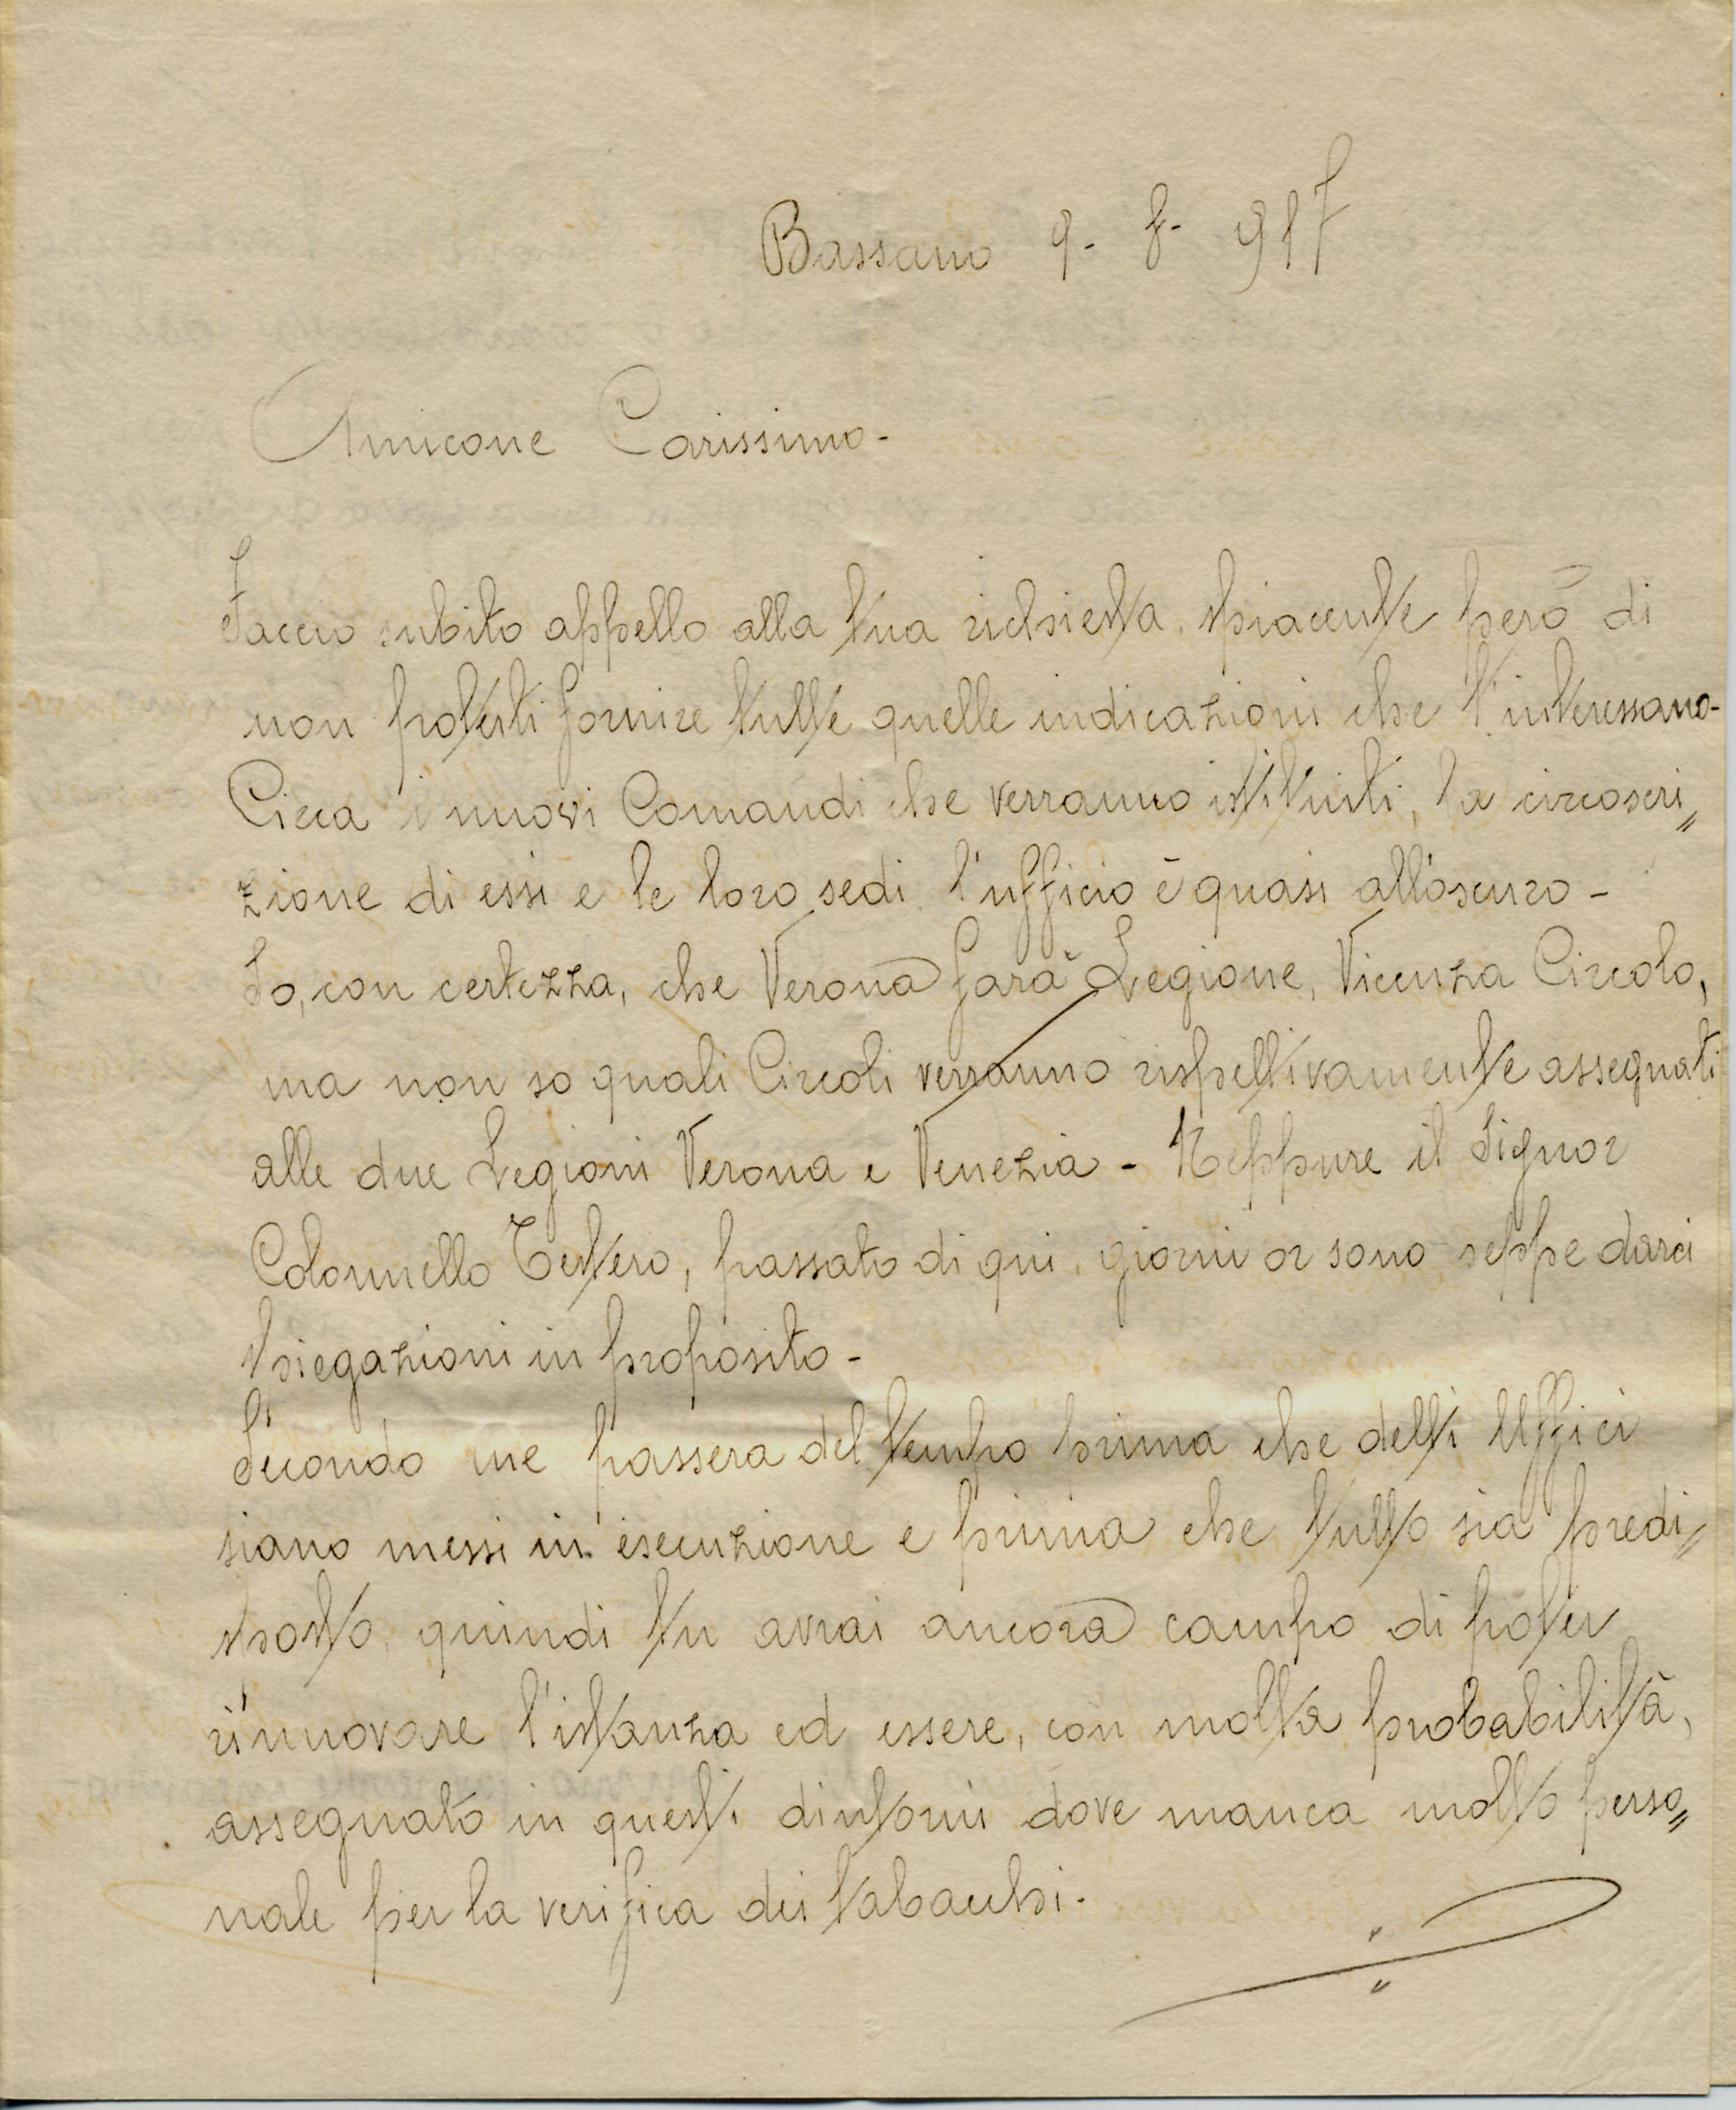 Bassano 9-8-917
Amicone Carissimo-
Faccio subito appello alla tua richiesta, spiacente però di
non poterti fornire tutte quelle indicazioni che t'interessano-
Circa i nuovi Comandi che verranno istituiti, la circoscri„
zione di essi e le loro sedi, l'ufficio è quasi all'oscuro-
So, con certezza, che Verona farà Legione, Vicenza Circolo,
ma non so quali Circoli verranno rispettivamente assegnati
alle due Legioni Verona e Venezia - Neppure il Signor
Colonnello, passato di qui, giorni or sono seppe darci
spiegazioni in proposito-
Secondo me passera del tempo prima che detti Uffici
siano messi in esecuzione e prima che tutto sia predi„
sposto, quindi tu avrai ancora campo di poter
rinnovare l'istanza ed essere, con molta probabilità,
assegnato in questi dintorni dove manca molto perso„
nale per la verifica dei tabacchi.